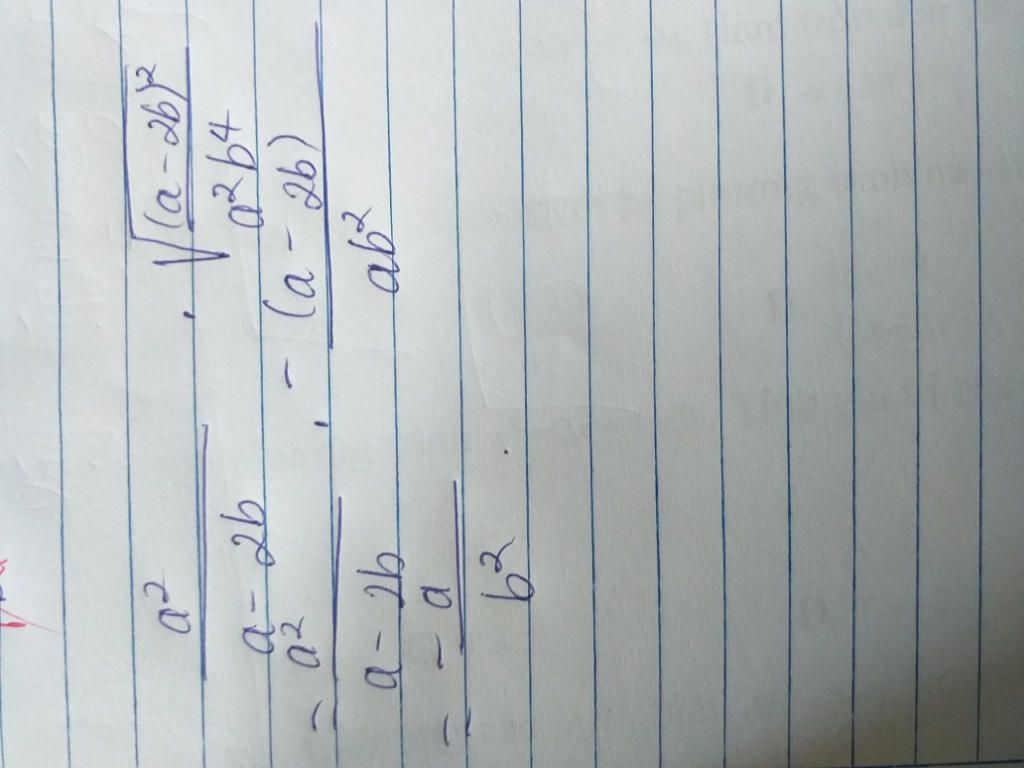 a² / (a - 2b) . √((a - 2b)² / (a²b⁴))
= a² / (a - 2b) . - (a - 2b) / (ab²)
= - a / b² .